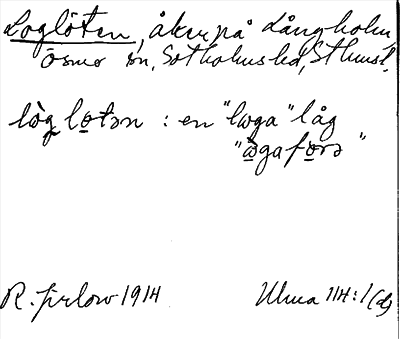 Loglöten, åker på Långholm,
Ösmo sn, Sotholms hd, Sthms l.
lòg lo̲tən : en "lωga" låg
"ω̲gaforə"
R. Jirlow 1914 Ulma 114:1(d)